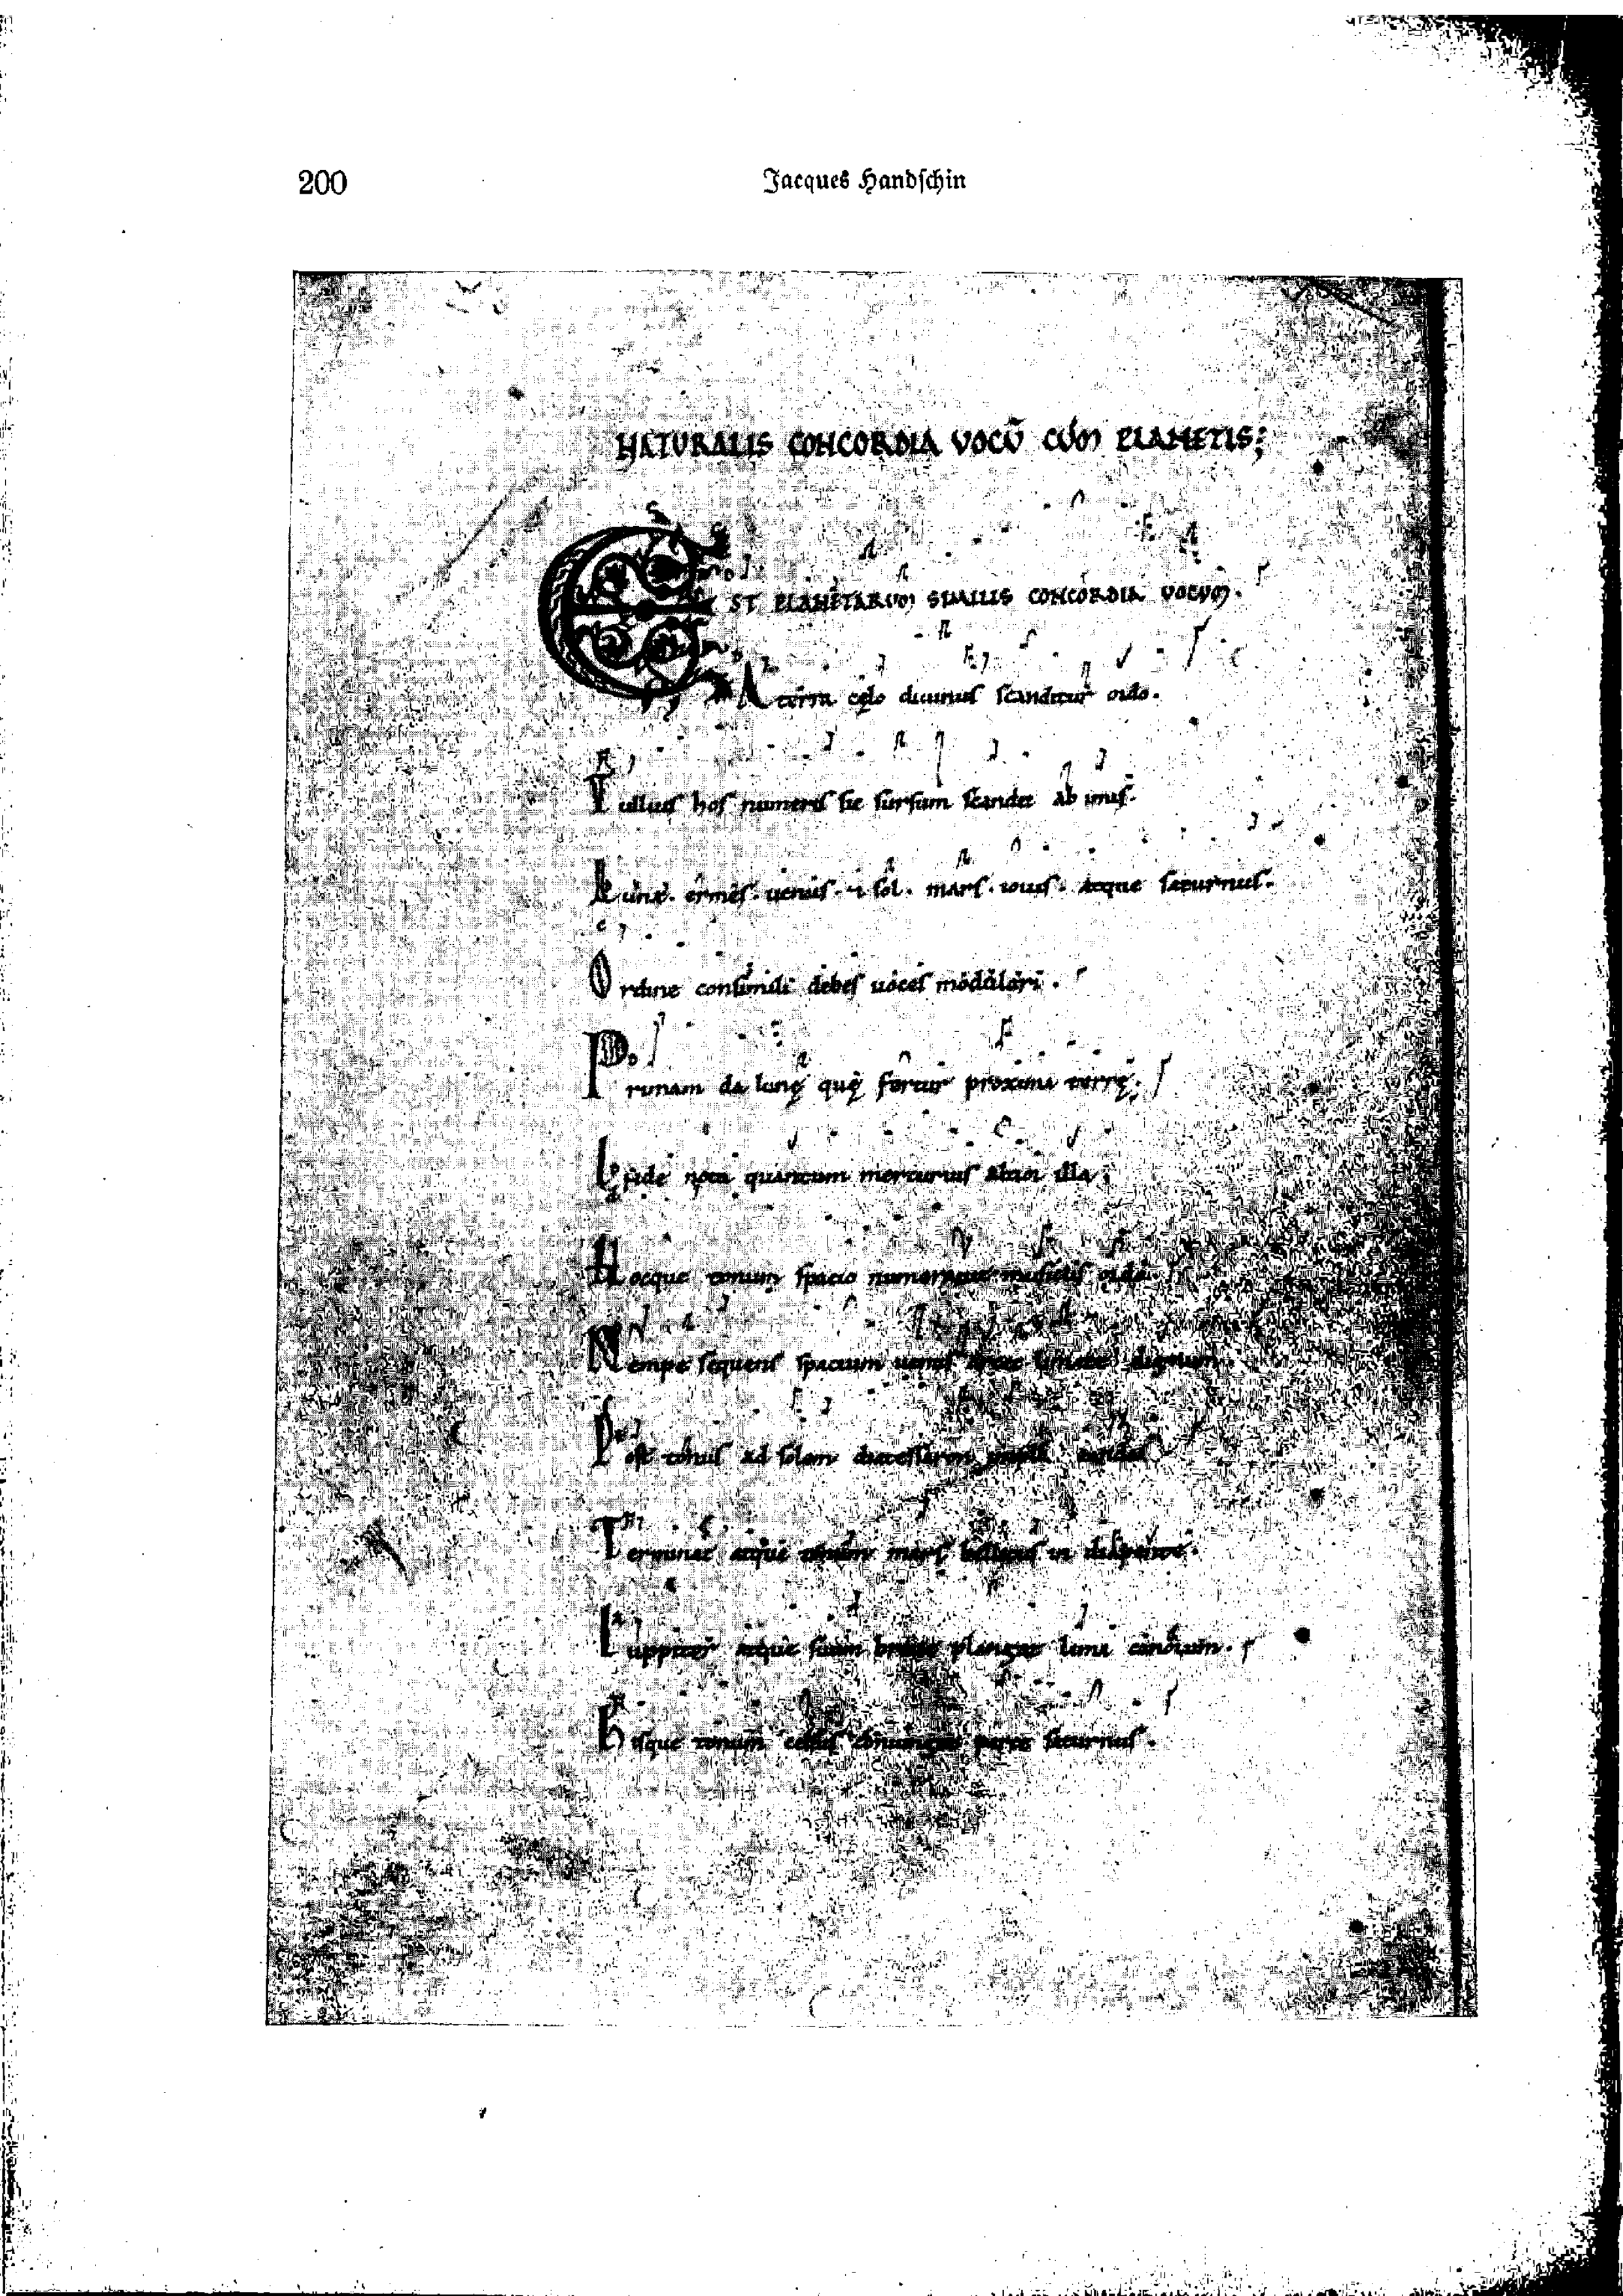 200
Jacques Handschin
NATURALIS CONCORDIA VOCŪ CŪM PLANETIS;
EST PLANETARUM SIMILIS CONCORDIA VOCUM.
A terra cęlo diuinus scanditur ordo.
Tullius hos numeris sic sursum scandit ab imis.
Luna. ermes. uenus. & sol. mars. iouis. atque saturnus.
Ordine consimili debes uoces modulari.
Primam da lunę quę fertur proxima terrę;
nota quantum mercurius altior illa;
Hocque tonum spacio
Nempe sequens spacium uenus
Post tonus ad solem diatessaron
Terminat atque mars in
Iuppiter atque suum plangat
Hisque tonum saturnus.